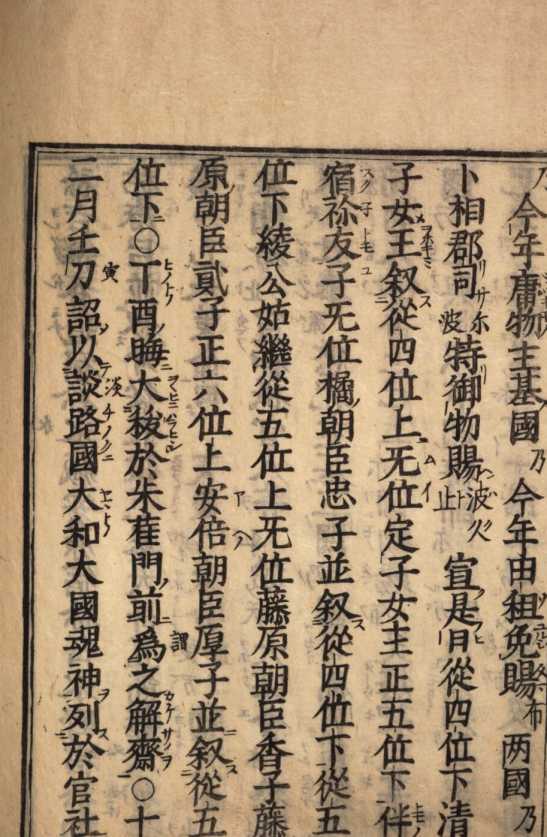 乃今年庸物主基國乃今年由租免賜布两國乃
卜相郡司尓波特御物賜波火止宣是日從四位下清
子女王叙從四位上无位定子女王正五位下伴
宿祢友子无位橘朝臣忠子並叙從四位下從五
位下綾公姑繼從五位上无位藤原朝臣香子藤
原朝臣貳子正六位上安倍朝臣厚子並叙從五
位下○丁酉晦大秡於朱雀門前爲之解齋○十
二月壬刀詔以談路國大和大國魂神列於官社